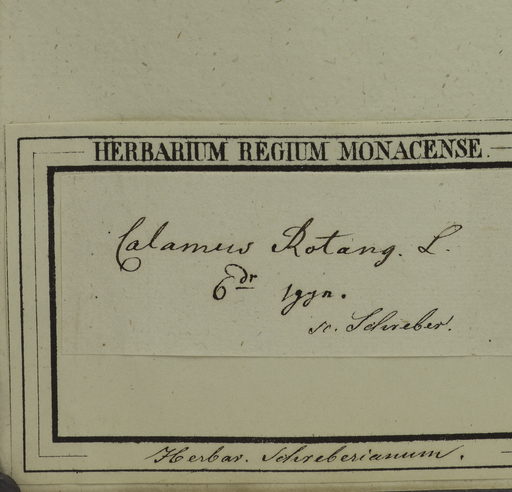 HERBARIUM REGIUM MONACENSE.
Calamus Rotang. L.
6dr 1gyn.
sc. Schreber.
Herbar. Schreberianum.